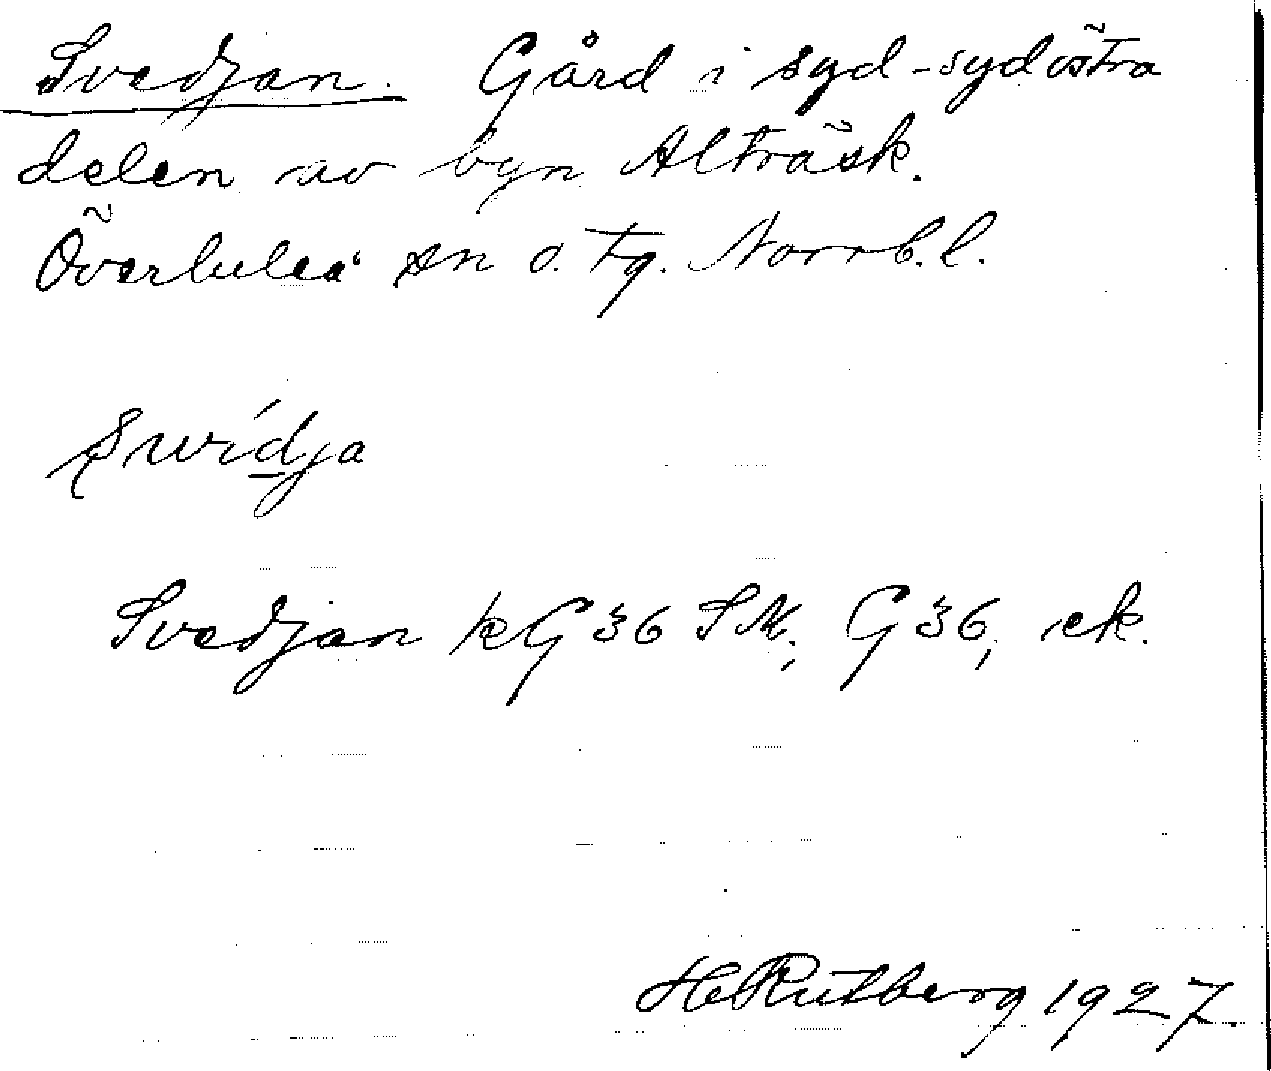 Svedjan. Gård i syd-sydöstra
delen av byn Alträsk.
Överluleå sn o. tg. Norrb.l.
swídja
Svedjan kG36 SK; G36, ek.
HRutberg 1927.